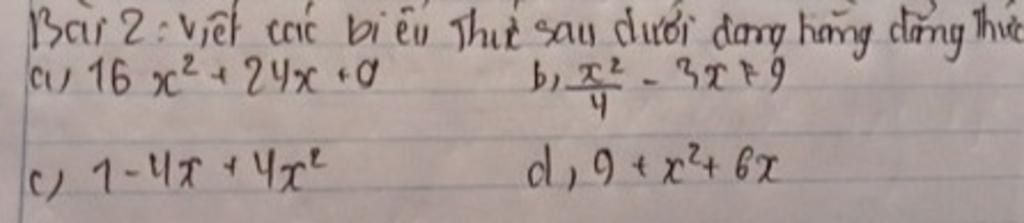 Bài 2: Viết các biểu thức sau dưới dạng hằng đẳng thức
a, 16x² + 24x + 9 b, x²/4 - 3x + 9
c, 1 - 4x + 4x² d, 9 + x² + 6x